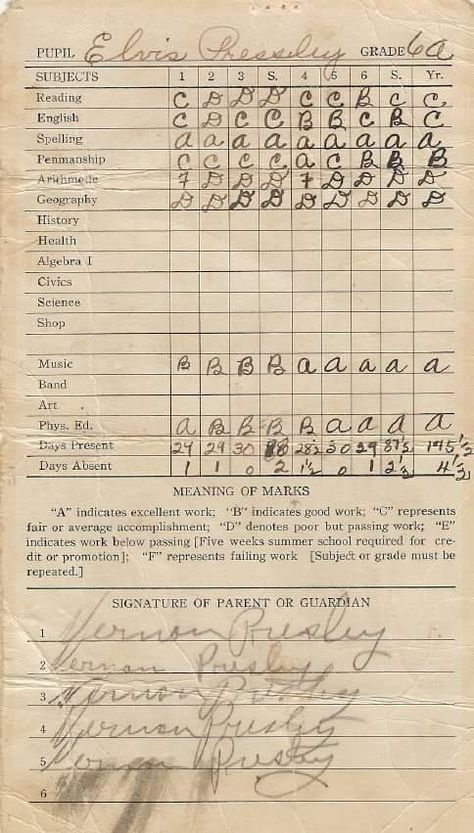 PUPIL Elvis Pressley GRADE 6A
SUBJECTS 1 2 3 S. 4 5 6 S. Yr.
Reading C D D D C C B C C
English C D C C B B C B C
Spelling A A A A A A A A A
Penmanship C C C C A C B B B
Arithmetic F D D D F D D D D
Geography D D D D D D D D D
History
Health
Algebra I
Civics
Science
Shop
Music B B B B A A A A A
Band
Art
Phys. Ed. A B B B B A A A A
Days Present 29 29 30 88 28½ 30 29 87½ 175½
Days Absent 1 1 0 2 1½ 0 1 2½ 4½
MEANING OF MARKS
"A" indicates excellent work; "B" indicates good work; "C" represents
fair or average accomplishment; "D" denotes poor but passing work; "E"
indicates work below passing [Five weeks summer school required for cre-
dit or promotion]; "F" represents failing work [Subject or grade must be
repeated.]
SIGNATURE OF PARENT OR GUARDIAN
1 Vernon Presley
2 Vernon Presley
3 Vernon Presley
4 Vernon Presley
5 Vernon Presley
6